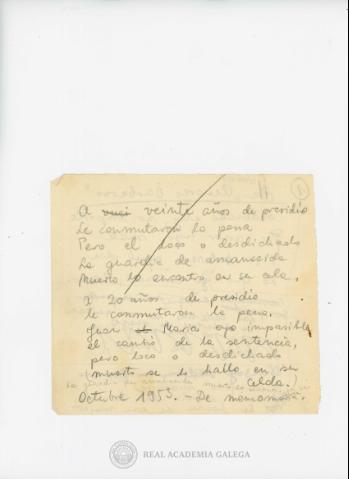 A veinte años de presidio
le conmutaron la pena
Pero el loco o desdichado
La guardia de amanecida
Muerto lo encontro en su celda.
A 20 años de presidio
le conmutaron la pena.
Juan Maria oyo impasible
el cambio de la sentencia,
pero loco o desdichado
muerto se le hallo en su
celda.)
la guardia de
Octubre 1953. - De
REAL ACADEMIA GALEGA